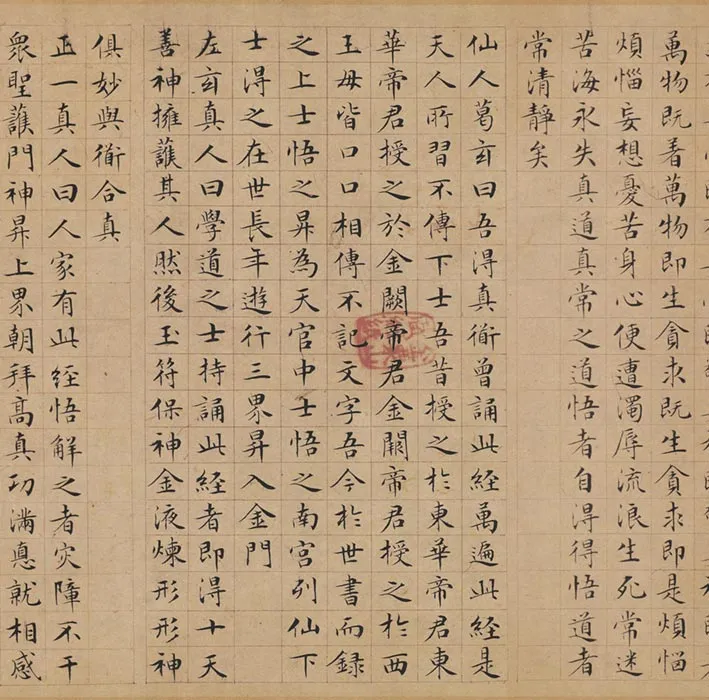 萬物既着萬物即生貪求既生貪求即是煩惱
煩惱妄想憂苦身心便遭濁辱流浪生死常迷
苦海永失真道真常之道悟者自得得悟道者
常清靜矣
仙人葛玄曰吾得真衜曾誦此經萬遍此經是
天人所習不傳下士吾昔授之於東華帝君東
華帝君授之於金闕帝君金闕帝君授之於西
王母皆口口相傳不記文字吾今於世書而録
之上士悟之昇為天官中士悟之南宮列仙下
士得之在世長年遊行三界昇入金門
左玄真人曰學道之士持誦此經者即得十天
善神擁護其人然後玉符保神金液煉形形神
俱妙與衜合真
正一真人曰人家有此經悟解之者灾障不干
衆聖護門神昇上界朝拜高真功滿悳就相感